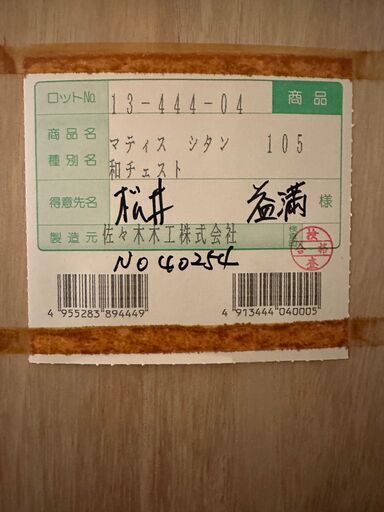 ロットNo. 13-444-04 商品
商品名 マティス シタン 105
種別名 和チェスト
得意先名 松井 益満 様
製造元 佐々木木工株式会社 検査印
検査 合格
NO 40254
4 955283 894449 4 913444 040005